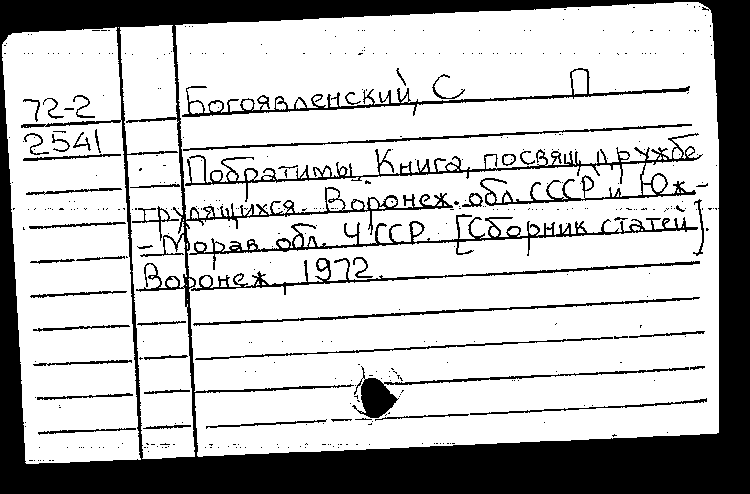 72-2 Богоявленский, С П
2541
Побратимы. Книга, посвящ. дружбе
трудящихся Воронеж. обл. СССР и Юж-
-Морав. обл. ЧССР. [Сборник статей].
Воронеж, 1972.